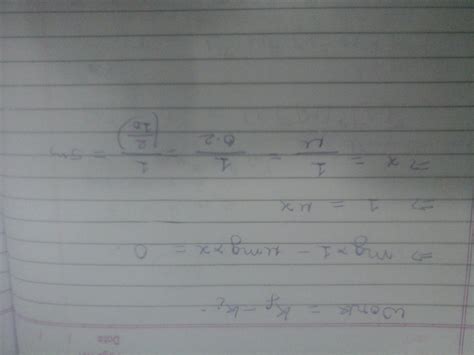 Date
Work = K_f - K_i
⇒ mg×1 - μmg×x = 0
⇒ 1 = μx
⇒ x = 1/μ = 1/0.2 = 1/(2/10) = 5m